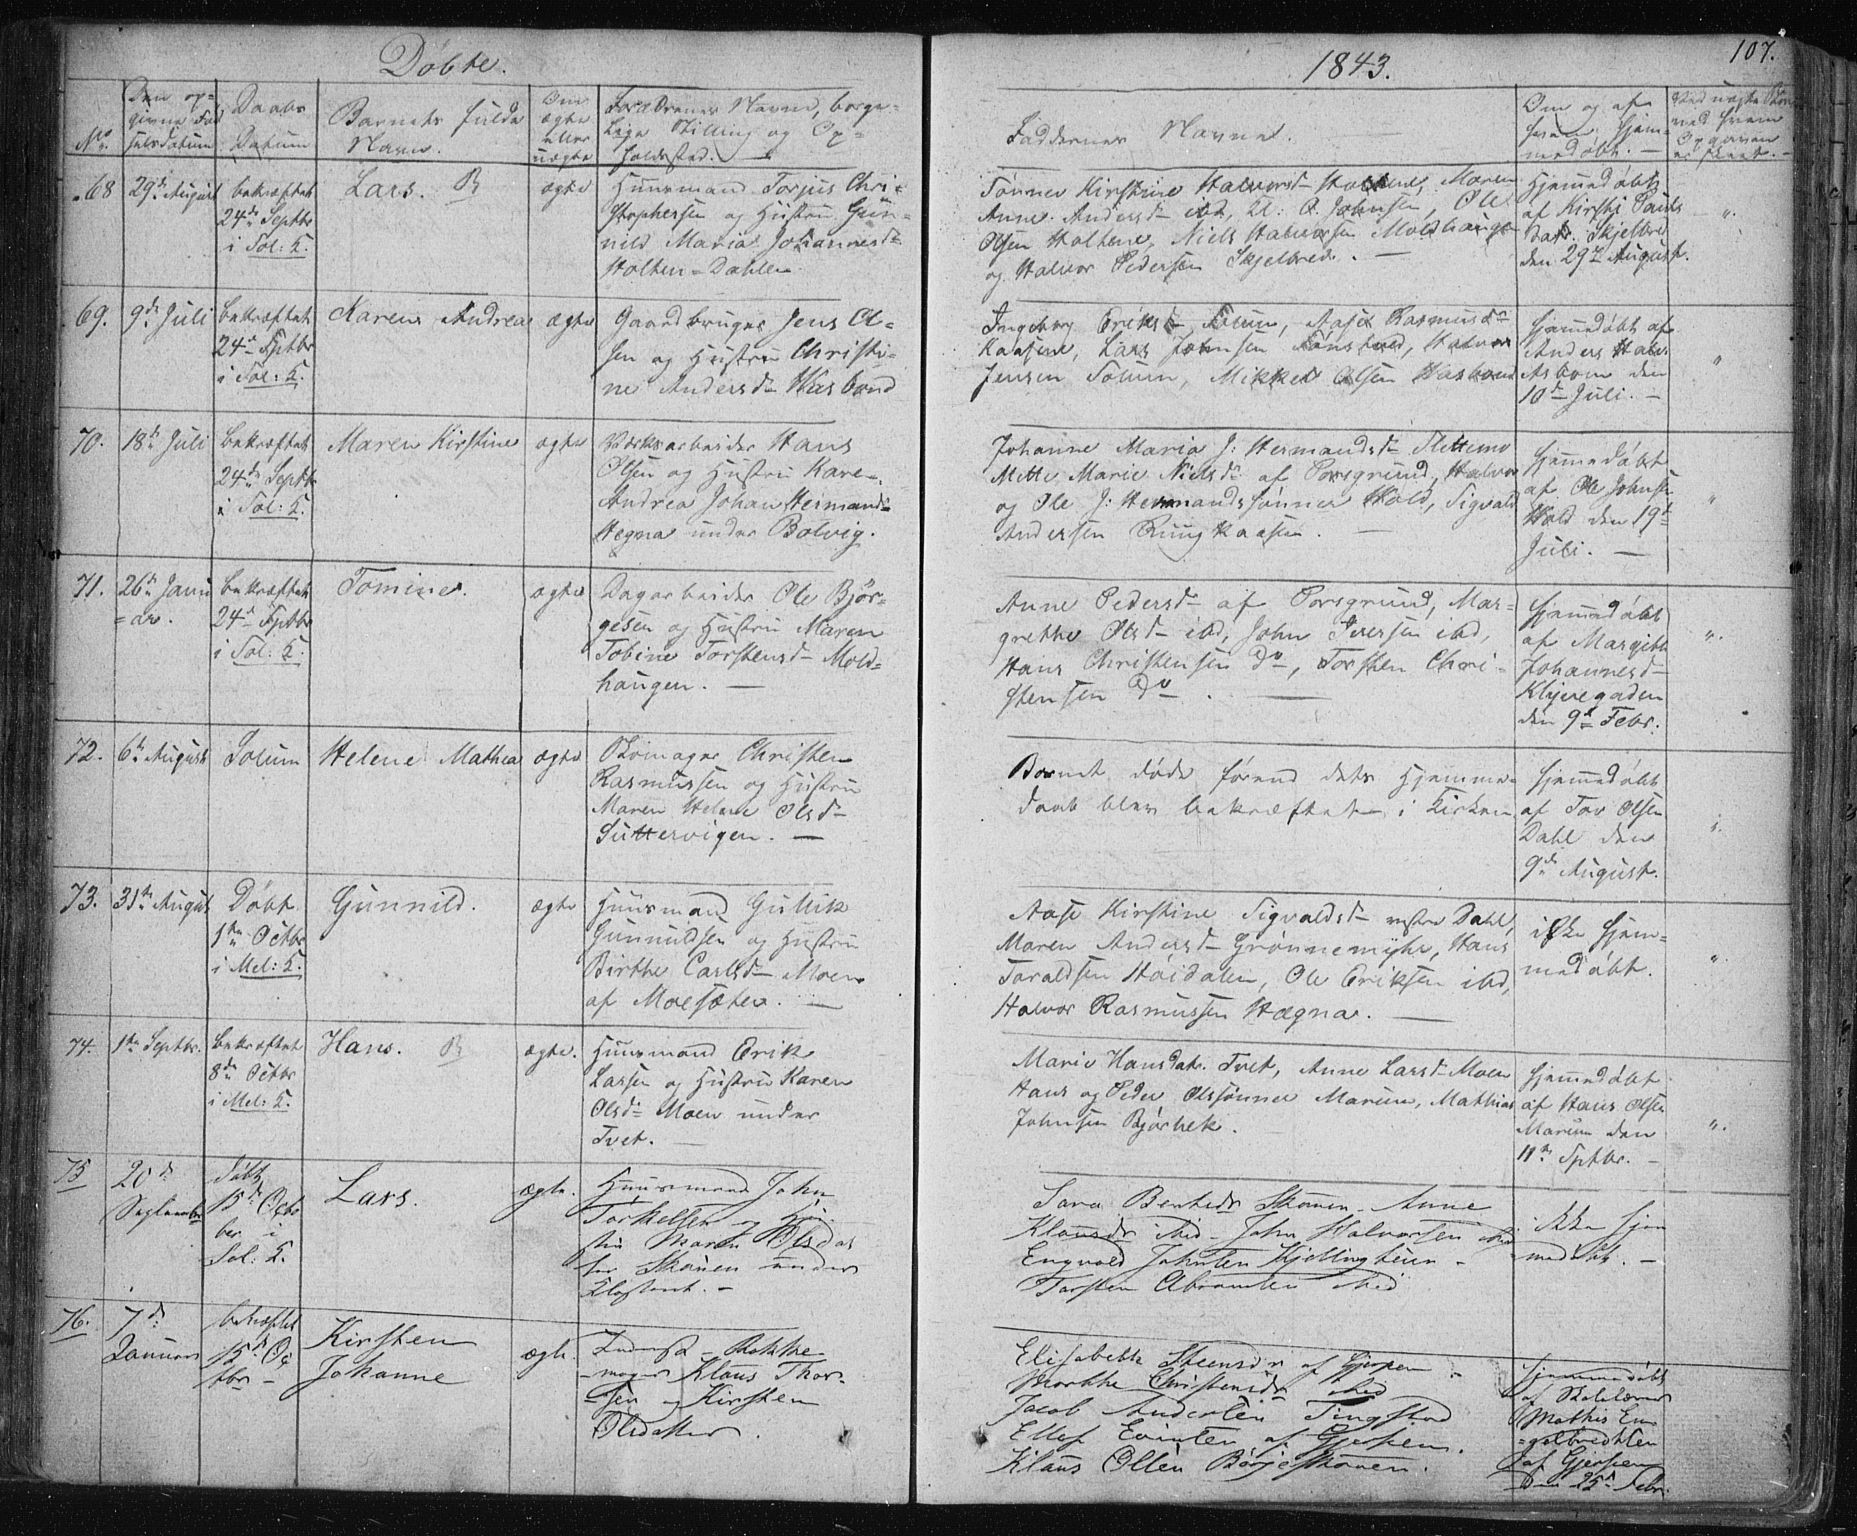 Döbte.
1843.
107.
No.
Den op=
givne Fød
selsdatum
Daabs
Datum
Barnets fulde
Navn.
Om
ægte
eller
uægte
Forældrenes Navne, borger=
lige Stilling og Op=
holdssted.
Faddernes Navne.
Om og af
hvem hjem=
medøbt.
68
29de August
bekræftet
24de Septbr
i Sol: K.
Lars.
ægte
Huusmand Torjus Chri=
stophersen og Hustru Gun=
nild Maria Johannesd
Holten=Dahlen
Tønner Kirstine Halvorsd Holtene, Maren
Anne Andersd ibd, Johnsen, Ole
Olsen Holtene, Niels Halvorsen Moldhaugen
og Halvor Pedersen Skjelbred.
Hjemmedøbt
af Kirsti Pauls
Datr. Skjelbred
den 29de August.
69.
9de Juli
bekræftet
24de Sptbr
i Sol: K.
Karen Andrea
ægte
Gaardbruger Jens Ol=
sen og Hustru Christi=
ne Andersd Hasbond
Ingeborg Eriksd Solum, Aase Rasmusd
Kaasene, Lars Johnsen, Halvor
Jensen Solum, Mikkel Olsen Hasbond
hjemmedøbt af
Anders Halv.
Asbom den
10de Juli.
70.
18de Juli
bekræftet
24de Septbr
i Sol: K.
Maren Kirstine
ægte
Værksarbeider Hans
Olsen og Hustru Kare.
Andrea Johan Hermands
Hægna under Bolvig.
Johanne Maria J: Hermandsd Slettemo
Mette Marie Nielsd af Porsgrund, Halvor
og Ole J: Hermandssønner Hold, Sigvald
Andersen Ringkaasen.
hjemmedøbt
af Ole Johnsen
Hold den 19de
Juli.
71.
26de Janu
=ar.
bekræftet
24de Sptbr
i Sol: K.
Tomine.
ægte
Dagarbeider Ole Bjør=
gesen og Hustru Maren
Tobine Torstensd Mold=
haugen.
Anne Pedersd af Porsgrund, Mar=
grethe Olsd ibd, John Iversen ibd,
Hans Christensen Do, Torsten Chri=
stensen Do
hjemmedøbt
af Margith
Johannesd
Klyvegaden
den 9de Febr.
72.
6te August
Solum
Helene Mathea
ægte
Skomager Christen
Rasmussen og Hustru
Maren Helene Olsd
Suttervigen.
Barnet døde førend dets Hjemme=
daab blev bekræftet i Kirken
hjemmedøbt
af Tov Olsen
Dahl den
9de August.
73.
31te August
Döbt
1ste Octbr
i Mel: K.
Gunnild.
ægte
Huusmand Gullik
Gunnuldsen og Hustru
Birthe Carlsd Moen
af Moesæter.
Aase Kirstine Sigvaldsd vestre Dahl,
Maren Andersd Grønnemyhr, Hans
Taraldsen Høidalen, Ole Eriksen ibd,
Halvor Rasmussen Hægna.
ikke hjem=
medøbt.
74.
1ste Septbr.
bekræftet
8de Octbr
i Mel: K.
Hans.
ægte.
Huusmand Erik
Larsen og Hustru Karen
Olsd Moen under
Tvet.
Marie Hansdatr. Tvet, Anne Larsd Moen
Hans og Peder Olssønner Marum, Mathias
Johnsen Bjørbek.
hjemmedøbt
af Hans Olsen
Marum den
11te Sptbr.
75
20de
September
døbt
15de Octo
ber i
Sol: K.
Lars.
ægte.
Huusmand John
Torkelsen og Hu
stru Maren Olsdat
ter Skauen under
Klosteret.
Sara Bentsdr Skauen. Anne
Klausdr ibid. John Halvorsen ibid
Engvold Johnsen Kjellingheien
Torsten Abramsen ibid
ikke hjem
medøbt.
76.
7de
Januar
bekræftet
15de Oc
tbr
Kirsten
Johanne
ægte.
Inderst Rokke=
=mager Klaus Thor=
=sen Kirsten
Olsdatter.
Elisabeth Steensdr af Gjerpen
Marthe Christensdr ibid
Jacob Andersen Tingstad
Ellef Evensen af Gjerpen.
Klaus Olsen Børjeskauen.
Hjemmedøbt
af Skolelærer
Mathis En
=gelbrechtsen
af Gjerpen
Den 25de Febr.